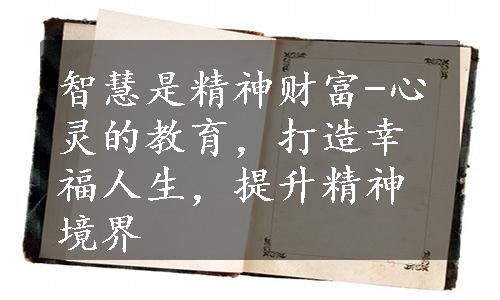 智慧是精神财富-心
灵的教育，打造幸
福人生，提升精神
境界